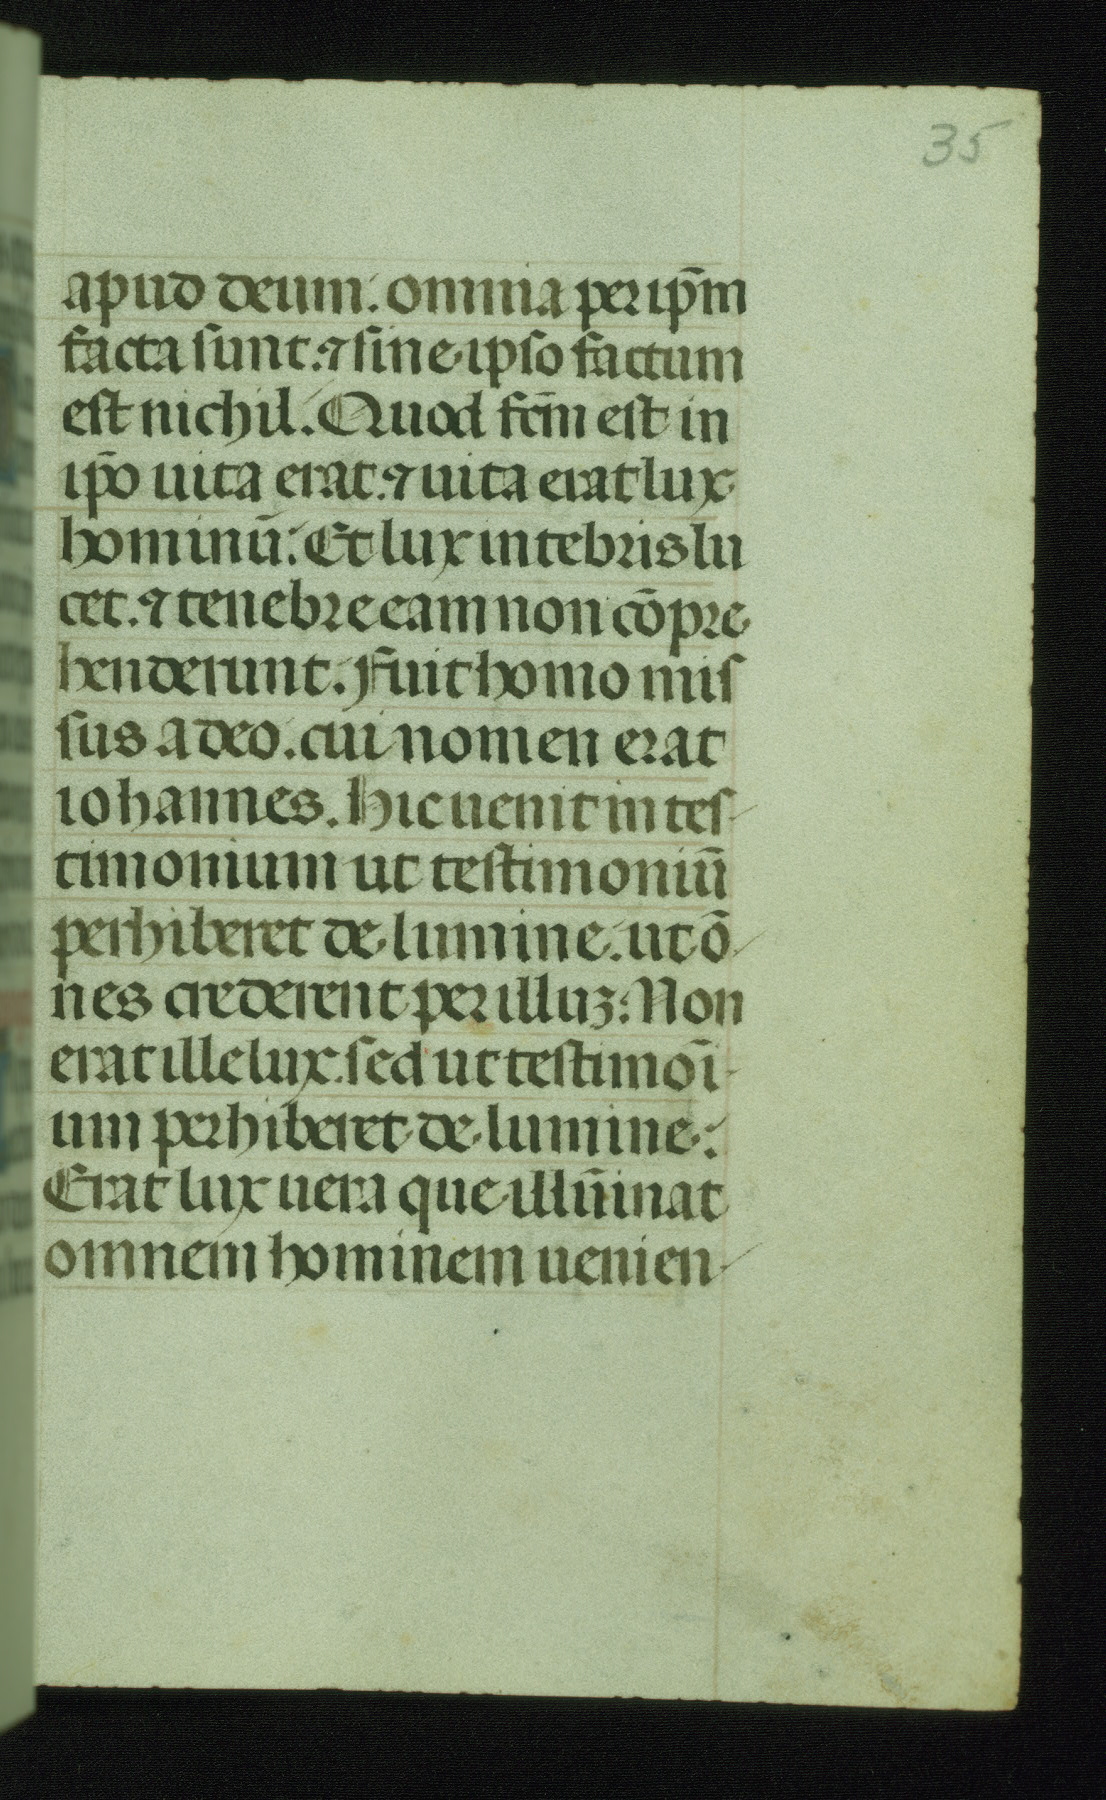 35
apud deum. omnia per ip̄m
facta sunt. ⁊ sine ipso factum
est nichil. Quod fc̄m est in
ip̄o uita erat. ⁊ uita erat lux
hominū. Et lux in tebris lu
cet. ⁊ tenebre eam non cōpre
henderunt. Fuit homo mis
sus a deo. cui nomen erat
iohannes. hic uenit in tes-
timonium ut testimoniū
perhiberet de lumine. ut ō-
nes crederent per illuꝫ. Non
erat ille lux. sed ut testimoī-
um perhiberet de lumine.
Erat lux uera que illūinat
omnem hominem uenien-